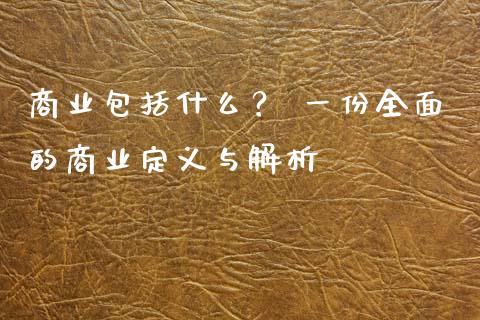 商业包括什么？ 一份全面
的商业定义与解析